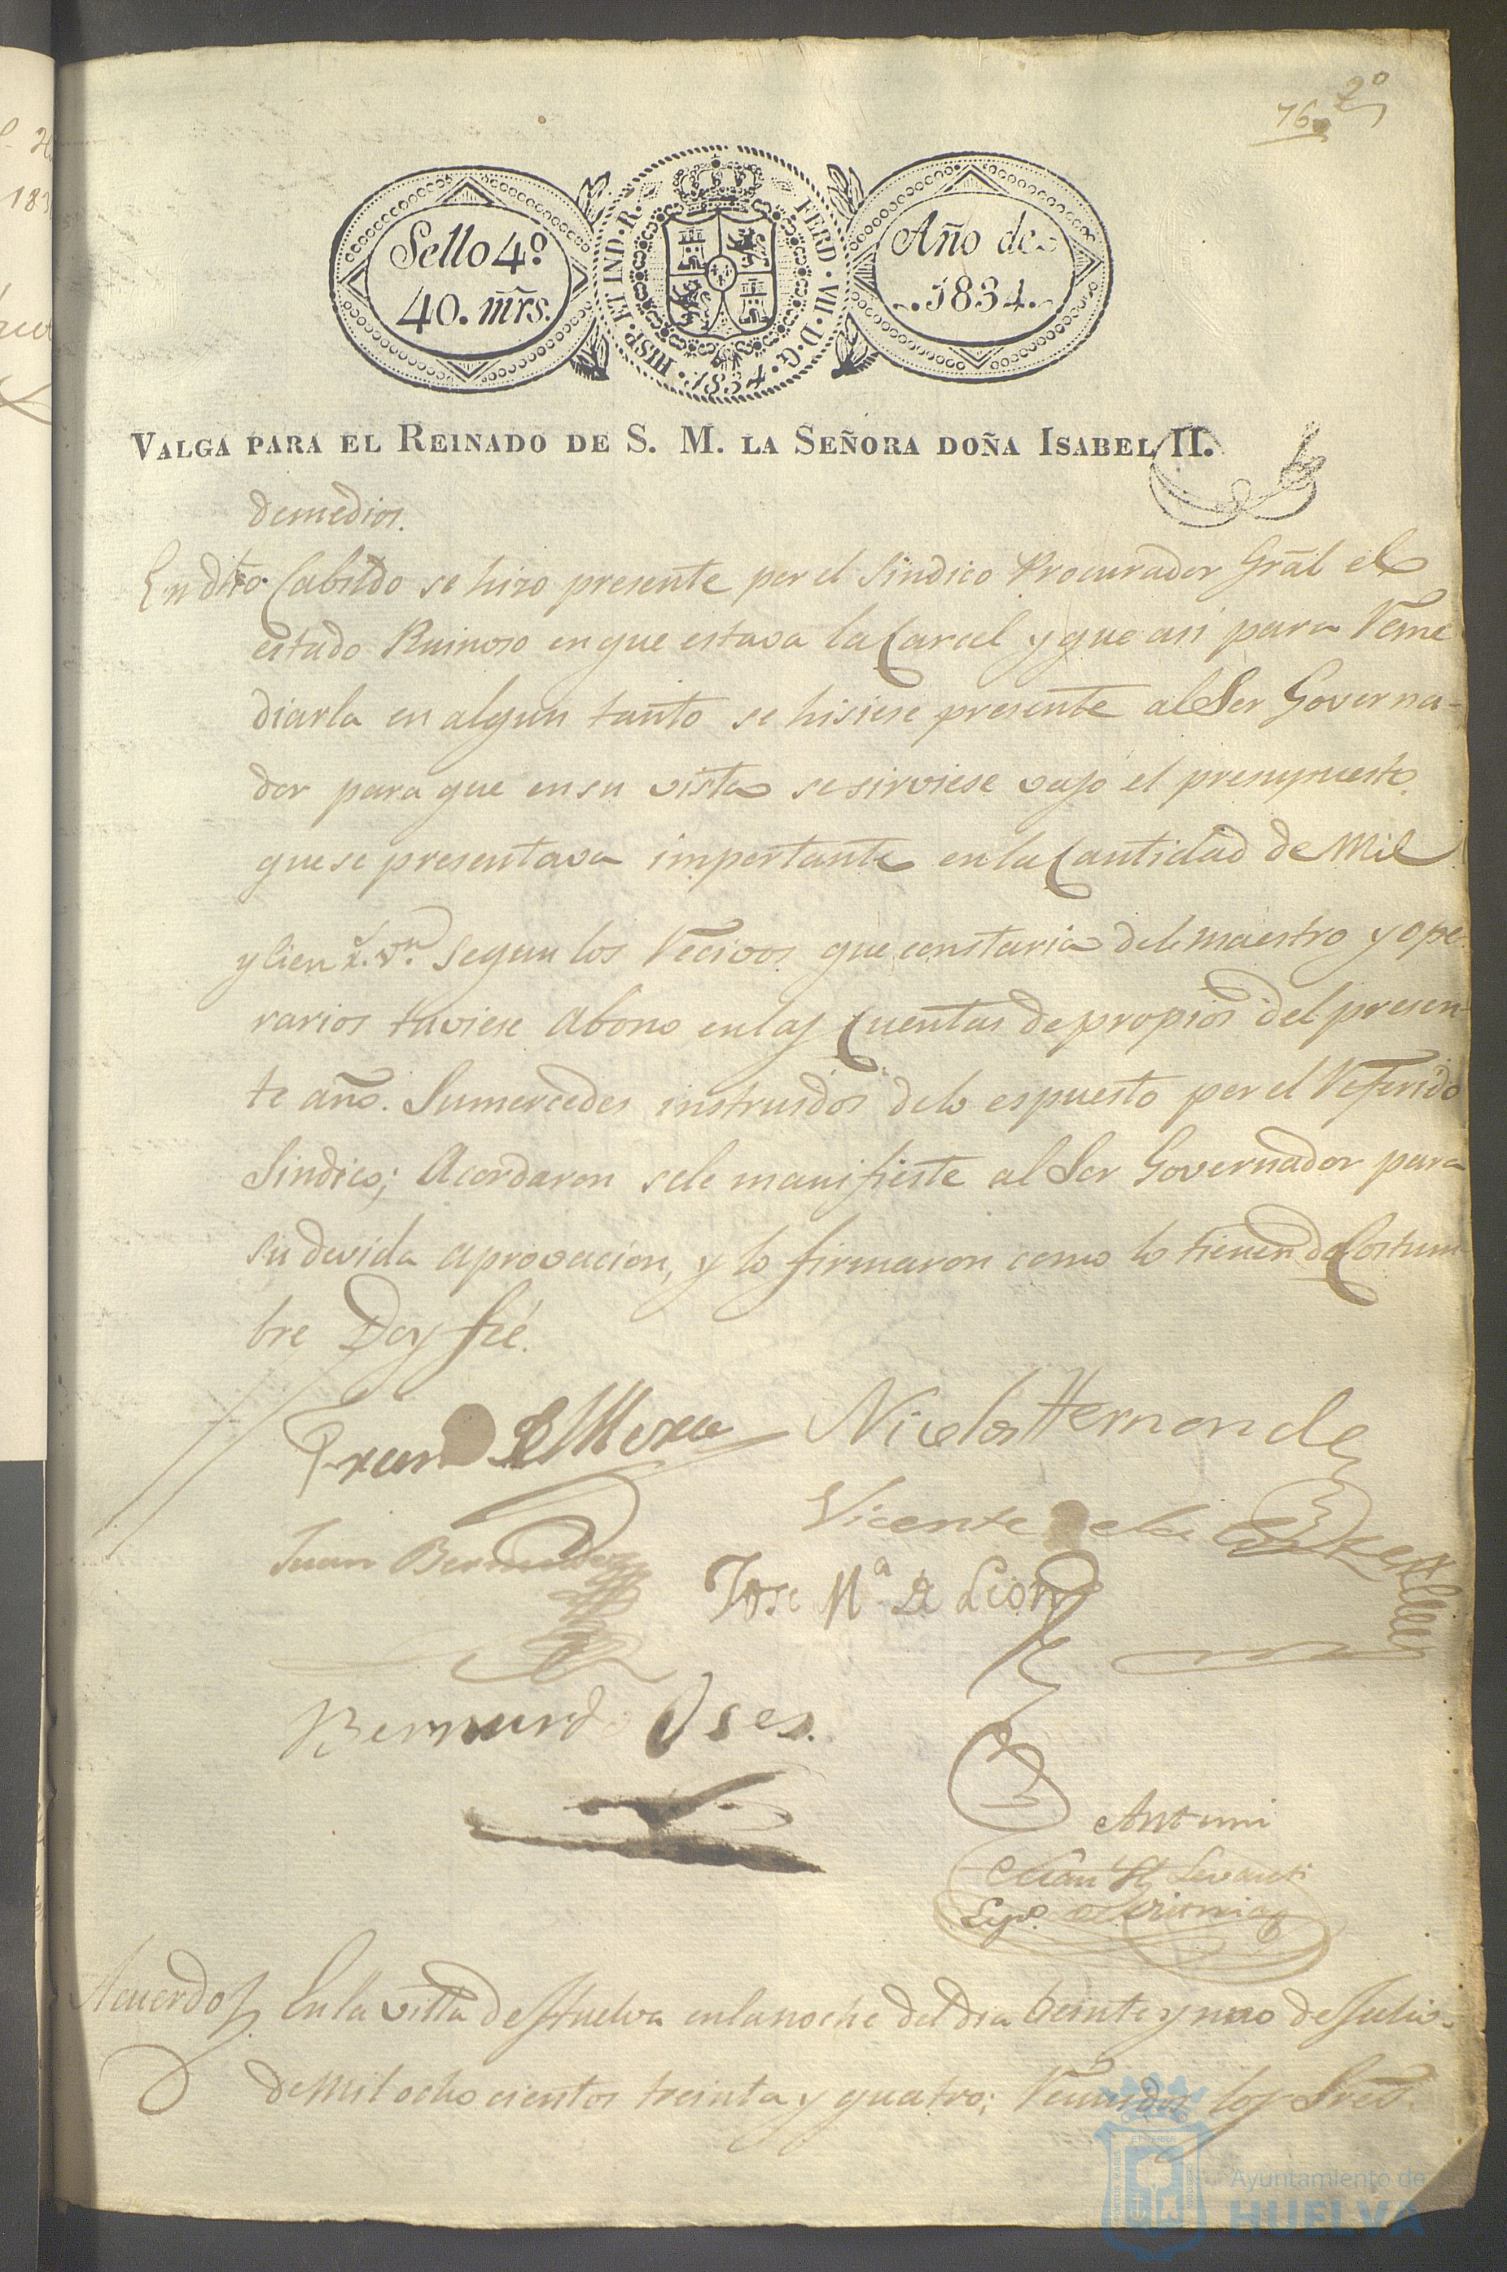 2º
76
Sello 4.º
40. mrs.
HISP. ET IND. R.
FERD. VII. D. G. 1834.
Año de
1834.
VALGA PARA EL REINADO DE S. M. LA SEÑORA DOÑA ISABEL II.
demedios.
En dho. Cabildo se hizo presente por el Sindico Procurador Gral el
estado Ruinoso en que estava la Carcel y que asi para Reme
diarla en algun tanto se hisiese presente al Sor Governa-
dor para que en su vista se sirviese vajo el presupuesto
que se presentava importante en la Cantidad de Mil
y Cien r.s v.n Segun los Recivos que constaria del maestro y ope
rarios tuviese Abono en las Cuentas de propios del presen-
te año. Sumercedes instruidos de lo espuesto por el Referido
Sindico; Acordaron se le manifieste al Sor Governador para
su devida aprovacion, y lo firmaron como lo tienen de Costum
bre Doy feé.
Nicolas Hernandez
Vicente de la
Juan Bermudez
Jose Mª de Leon
Bernardo Oses.
Antemi
Acuerdo En la villa de Huelva en la noche del dia beinte y nuo de Julio
de Mil ocho cientos treinta y quatro; Reunidos los Sres.
Ayuntamiento de
HUELVA